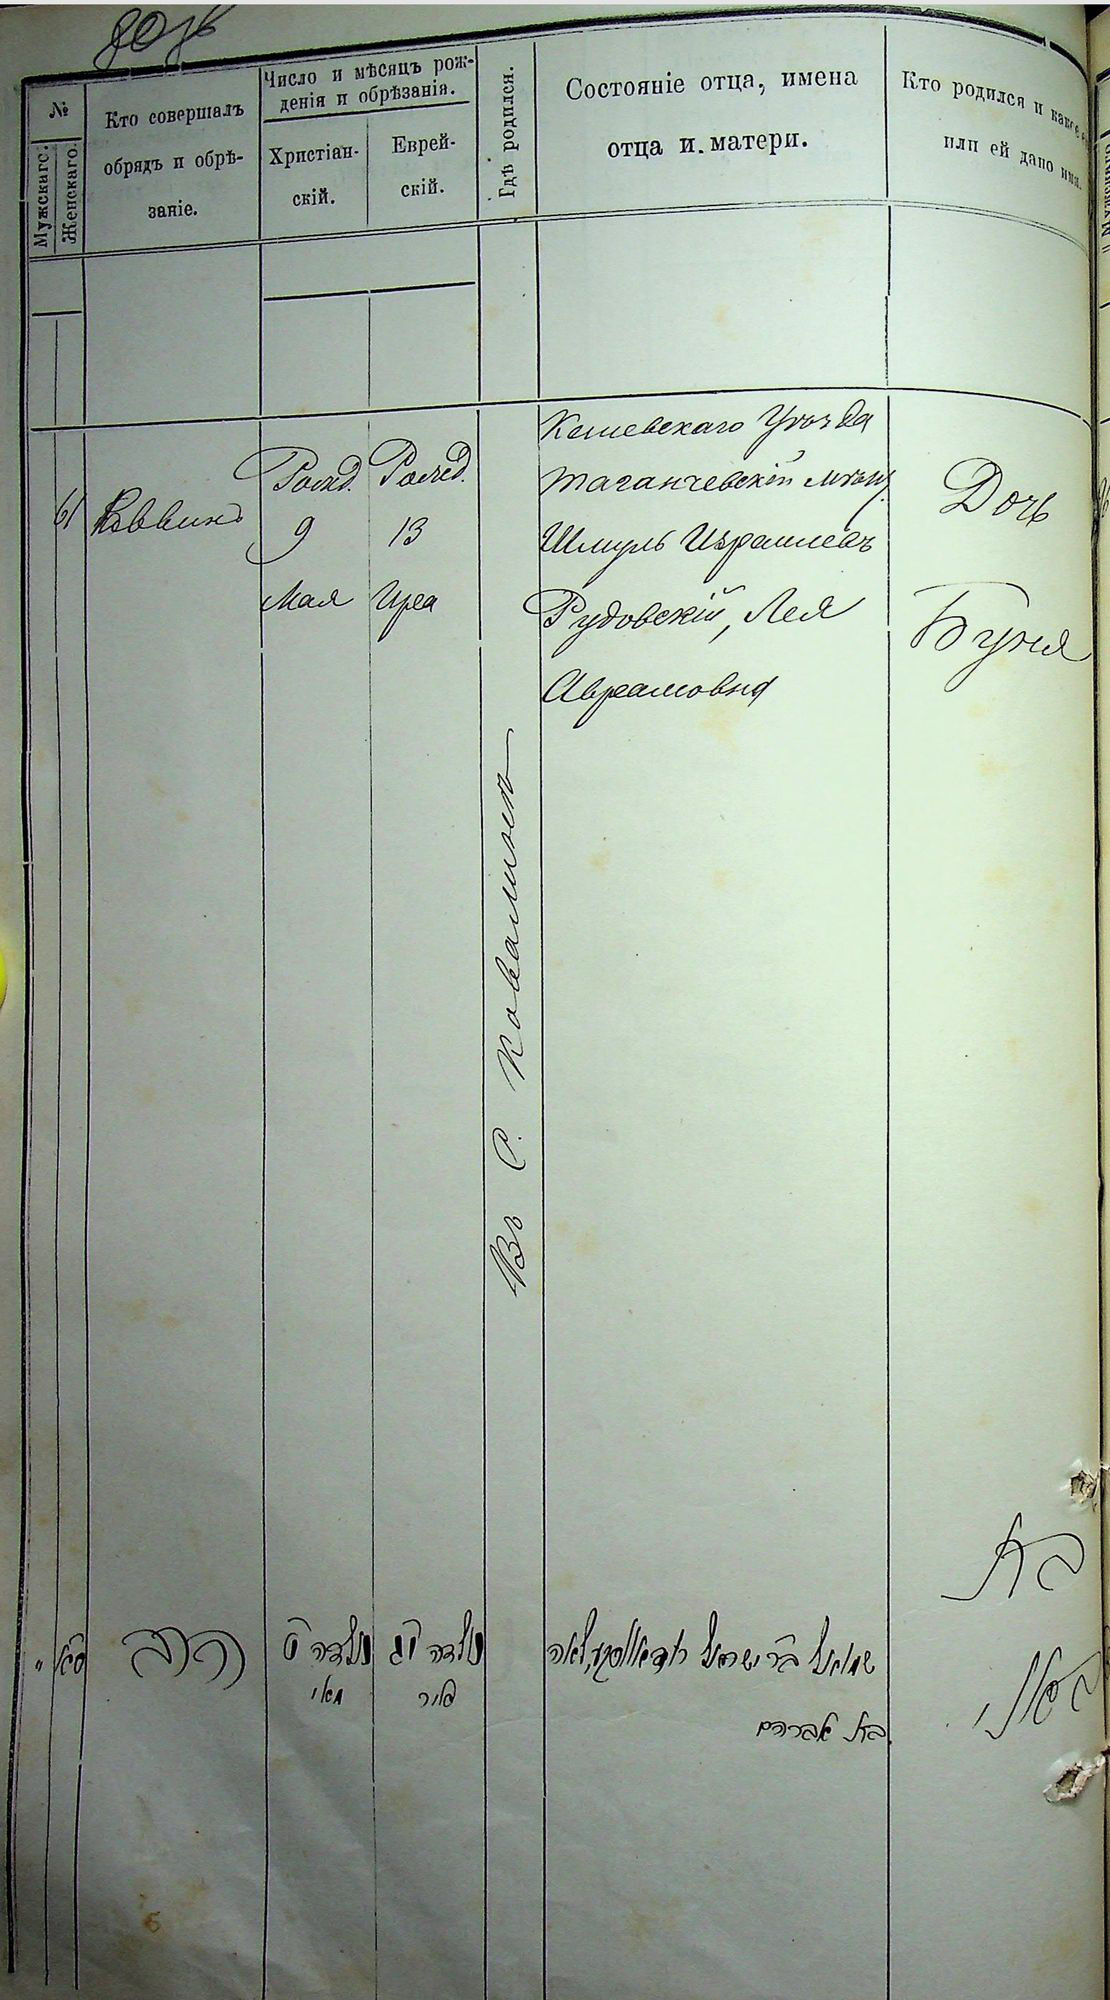 №
Мужскаго.
Женскаго.
Кто совершалъ
обрядъ и обрѣ-
заніе.
Число и мѣсяцъ рож-
денія и обрѣзанія.
Христіан-
скій.
Еврей-
скій.
Гдѣ родился.
Состояніе отца, имена
отца и матери.
Кто родился и какое
или ей дано имя.
61
Раввинъ
Рожд.
9
Мая
Рожд.
13
Іира
Въ С. Ковалинѣ
Каневскаго Уѣзда
Таганчевскій мѣщ.
Шмуль Израилевъ
Рудовскій, Лея
Аврамовна
Дочь
Буня
ס״א
הרב
נולדה ט׳
מאי
נולדה י״ג
אייר
שמואל ב״ר ישראל לאה
בת אברהם
בת